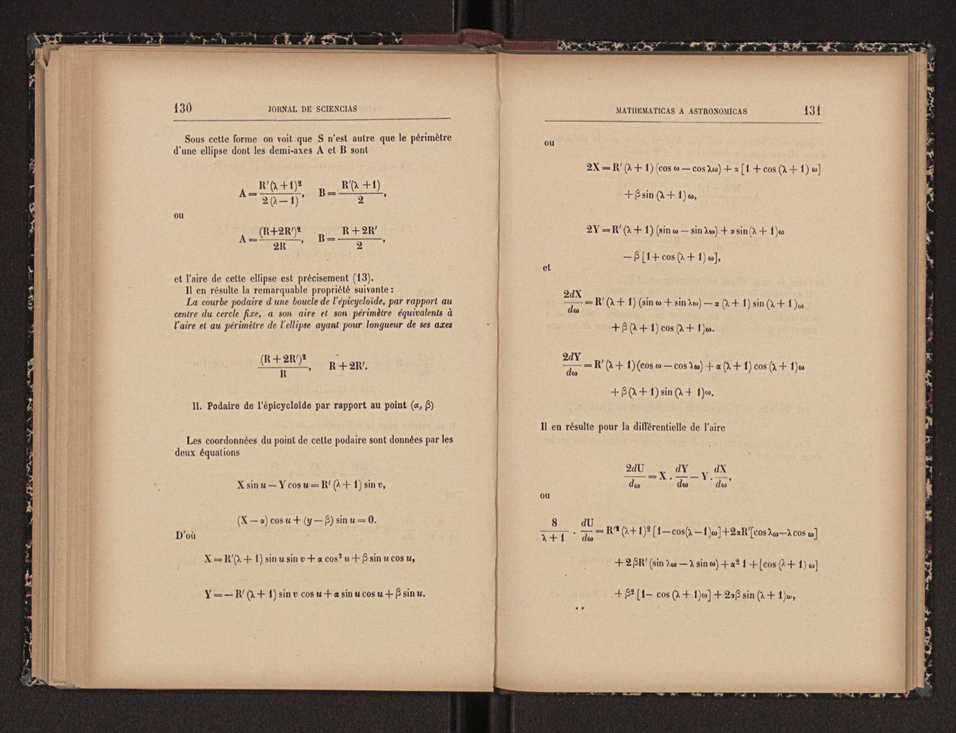 130 JORNAL DE SCIENCIAS
Sous cette forme on voit que S n'est autre que le périmètre
d'une ellipse dont les demi-axes A et B sont
A = R'(λ+1)² / 2(λ−1), B = R'(λ+1) / 2,
ou
A = (R+2R')² / 2R, B = R+2R' / 2,
et l'aire de cette ellipse est précisement (13).
Il en résulte la remarquable propriété suivante:
La courbe podaire d'une boucle de l'épicycloïde, par rapport au
centre du cercle fixe, a son aire et son périmètre équivalents à
l'aire et au périmètre de l'ellipse ayant pour longueur de ses axes
(R+2R')² / R, R+2R'.
11. Podaire de l'épicycloïde par rapport au point (α, β)
Les coordonnées du point de cette podaire sont données par les
deux équations
X sin u − Y cos u = R' (λ + 1) sin v,
(X − α) cos u + (y − β) sin u = 0.
D'où
X = R'(λ + 1) sin u sin v + α cos² u + β sin u cos u,
Y = − R' (λ + 1) sin v cos u + α sin u cos u + β sin u.
MATHEMATICAS A ASTRONOMICAS 131
ou
2X = R' (λ + 1) (cos ω − cos λω) + α [1 + cos (λ + 1) ω]
+ β sin (λ + 1) ω,
2Y = R' (λ + 1) (sin ω − sin λω) + α sin (λ + 1)ω
− β [1 + cos (λ + 1) ω],
et
2dX / dω = R' (λ + 1) (sin ω + sin λω) − α (λ + 1) sin (λ + 1)ω
+ β (λ + 1) cos (λ + 1)ω.
2dY / dω = R' (λ + 1)(cos ω − cos λω) + α (λ + 1) cos (λ + 1)ω
+ β (λ + 1) sin (λ + 1)ω.
Il en résulte pour la différentielle de l'aire
2dU / dω = X . dY / dω − Y . dX / dω,
ou
8 / λ + 1 . dU / dω = R'² (λ+1)² [1−cos(λ−1)ω]+2αR'[cos λω−λ cos ω]
+ 2βR' (sin λω − λ sin ω) + α² 1 + [cos (λ + 1) ω]
+ β² [1− cos (λ + 1)ω] + 2αβ sin (λ + 1)ω,